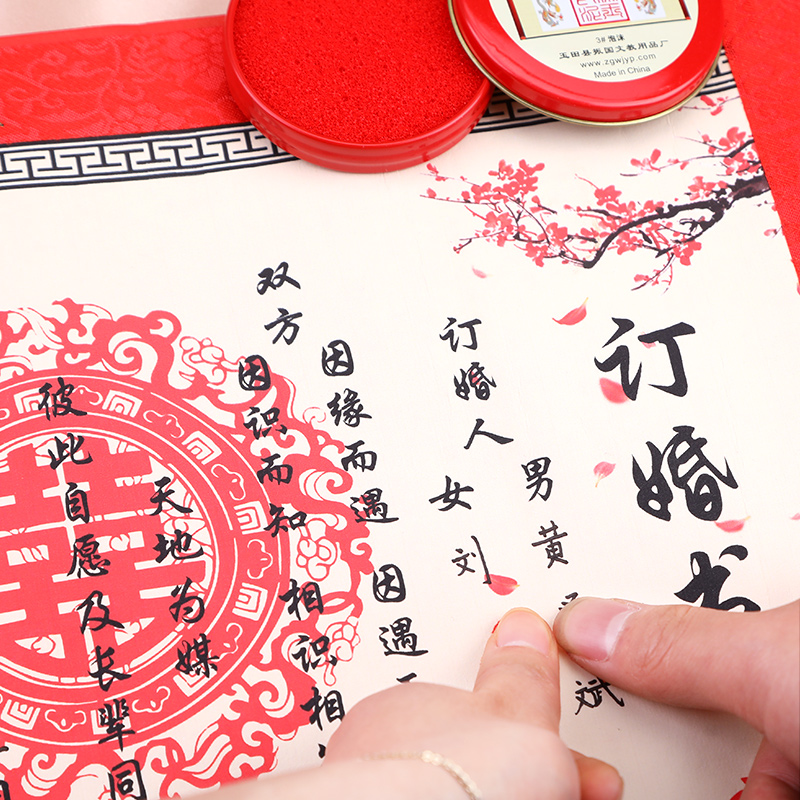 3# 泡沫
www.zgwjyp.com
Made in China
订婚书
订婚人
男 黄 斌
女 刘
双方
因缘而遇 因遇
因识而知 相识相
天地为媒
彼此自愿及长辈同
囍